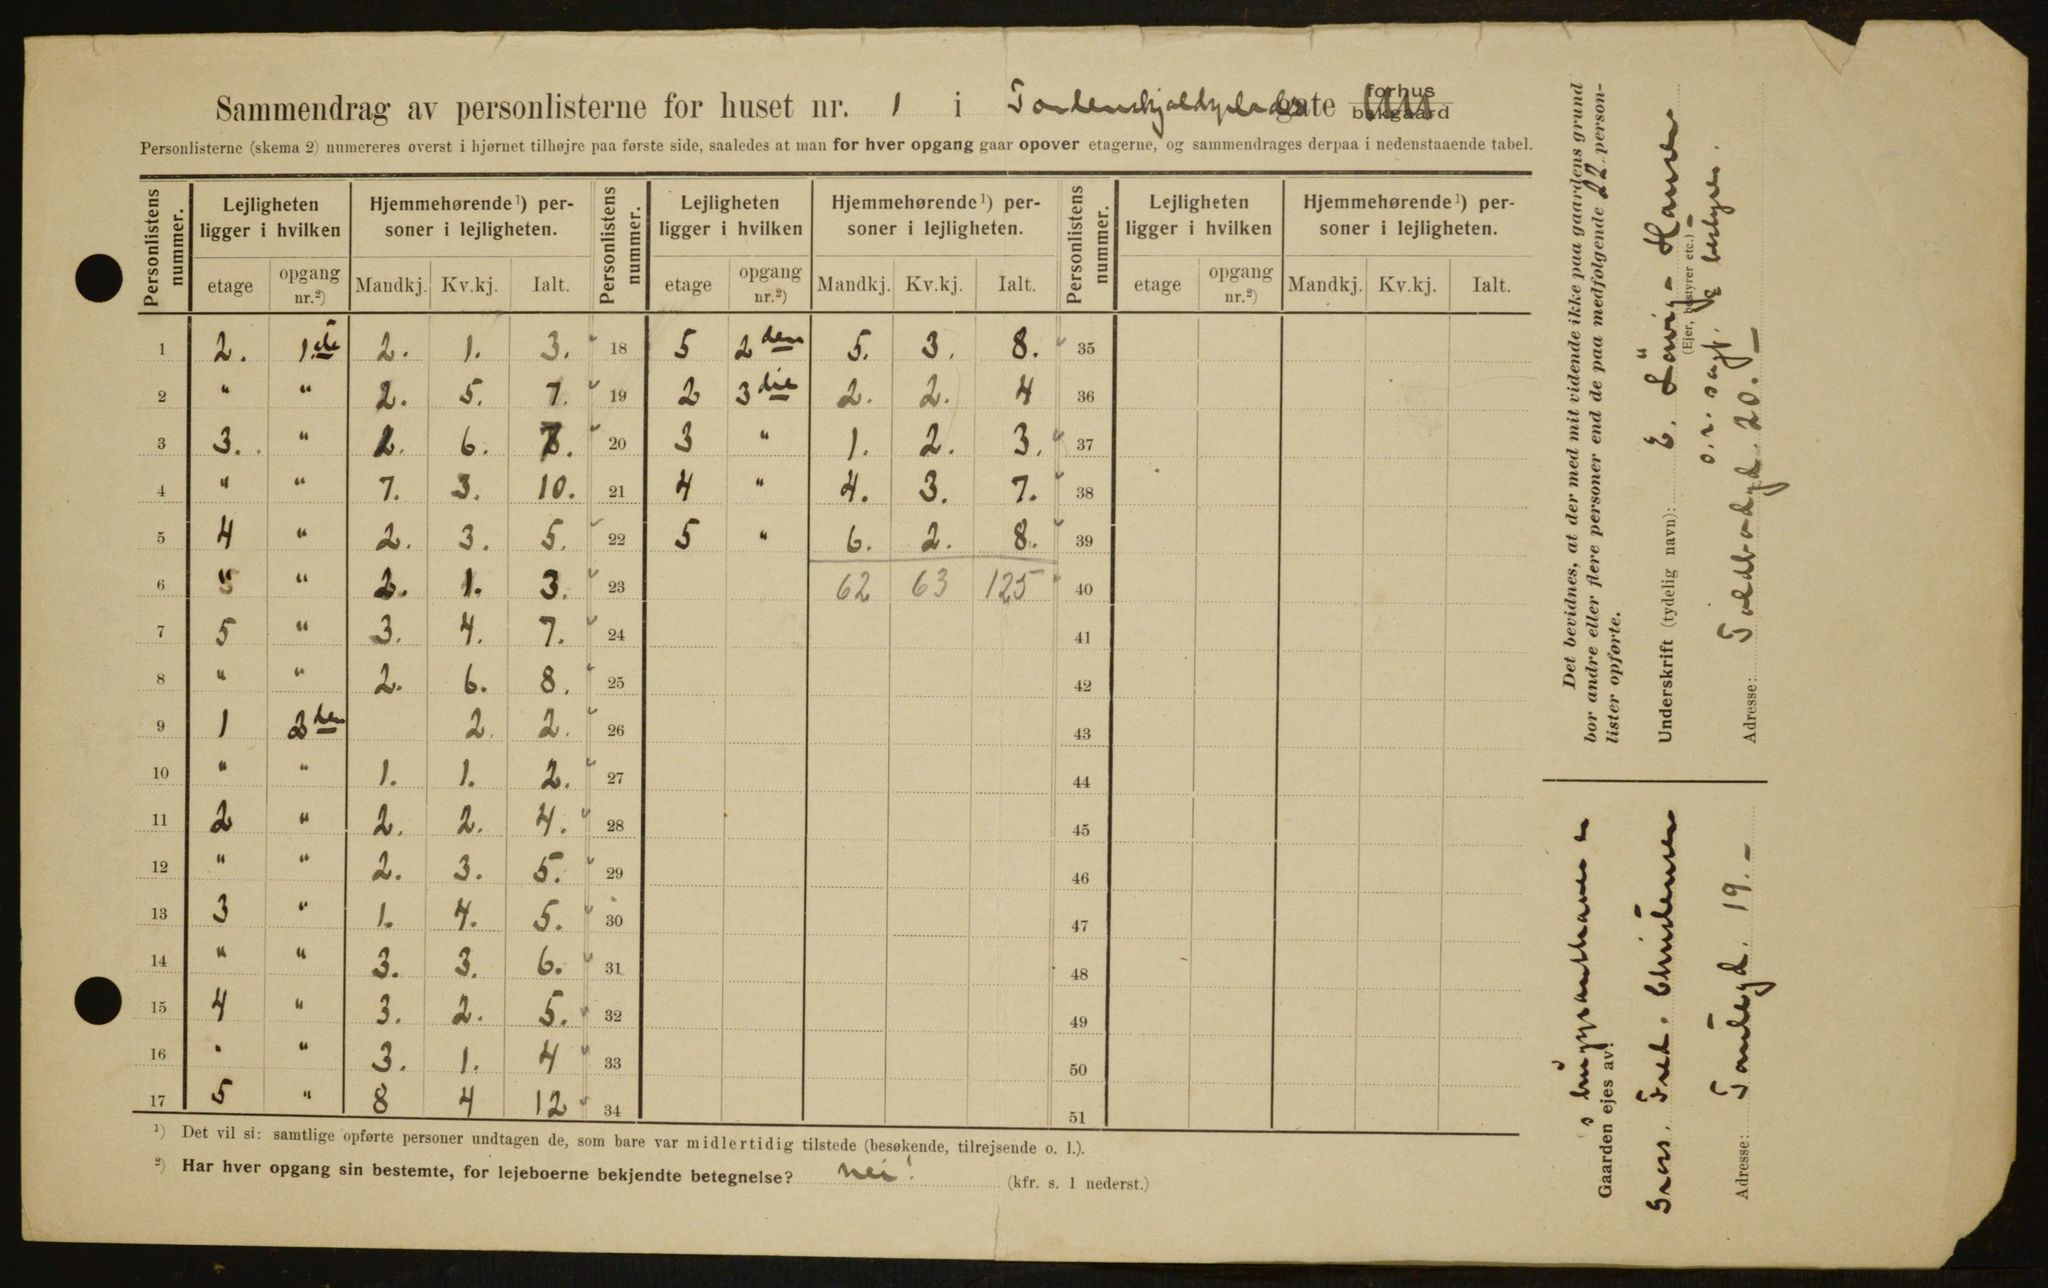 Sammendrag av personlisterne for huset nr. 1 i Tordenskjoldsplads gate forhus bakgaard
Personlisterne (skema 2) numereres øverst i hjørnet tilhøjre paa første side, saaledes at man for hver opgang gaar opover etagerne, og sammendrages derpaa i nedenstaaende tabel.
Personlistens nummer. Lejligheten ligger i hvilken Hjemmehørende¹) personer i lejligheten. Personlistens nummer. Lejligheten ligger i hvilken Hjemmehørende¹) personer i lejligheten. Personlistens nummer. Lejligheten ligger i hvilken Hjemmehørende¹) personer i lejligheten.
etage opgang nr.²) Mandkj. Kv.kj. Ialt. etage opgang nr.²) Mandkj. Kv.kj. Ialt. etage opgang nr.²) Mandkj. Kv.kj. Ialt.
1 2. 1.ste 2. 1. 3. 18 5 2den 5. 3. 8. 35
2 " " 2. 5. 7. 19 2 3die 2. 2. 4 36
3 3. " 6. 20 3 " 1. 2. 3. 37
4 " " 7. 3. 10. 21 4 " 4. 3. 7. 38
5 4 " 2. 3. 5. 22 5 " 6. 2. 8. 39
6 " " 2. 1. 3. 23 62 63 125 40
7 5 " 3. 4. 7. 24 41
8 " " 2. 6. 8. 25 42
9 1 2den 2. 2. 26 43
10 " " 1. 1. 2. 27 44
11 2 " 2. 2. 4. 28 45
12 " " 2. 3. 5. 29 46
13 3 " 1. 4. 5. 30 47
14 " " 3. 3. 6. 31 48
15 4 " 3. 2. 5. 32 49
16 " " 3. 1. 4 33 50
17 5 " 8 4 12 34 51
¹) Det vil si: samtlige opførte personer undtagen de, som bare var midlertidig tilstede (besøkende, tilrejsende o. l.).
²) Har hver opgang sin bestemte, for lejeboerne bekjendte betegnelse? nei! (kfr. s. 1 nederst.)
Det bevidnes, at der med mit vidende ikke paa gaardens grund
bor andre eller flere personer end de paa medfølgende 22 person-
lister opførte.
Underskrift (tydelig navn): E. Løvig-Hansen
(Ejer, bestyrer etc.)
o.r. sagf. & bestyrer.
Adresse: Toldbodgd. 20.
Gaarden ejes av:
Gros. Fred. Christensen
Adresse: 19.